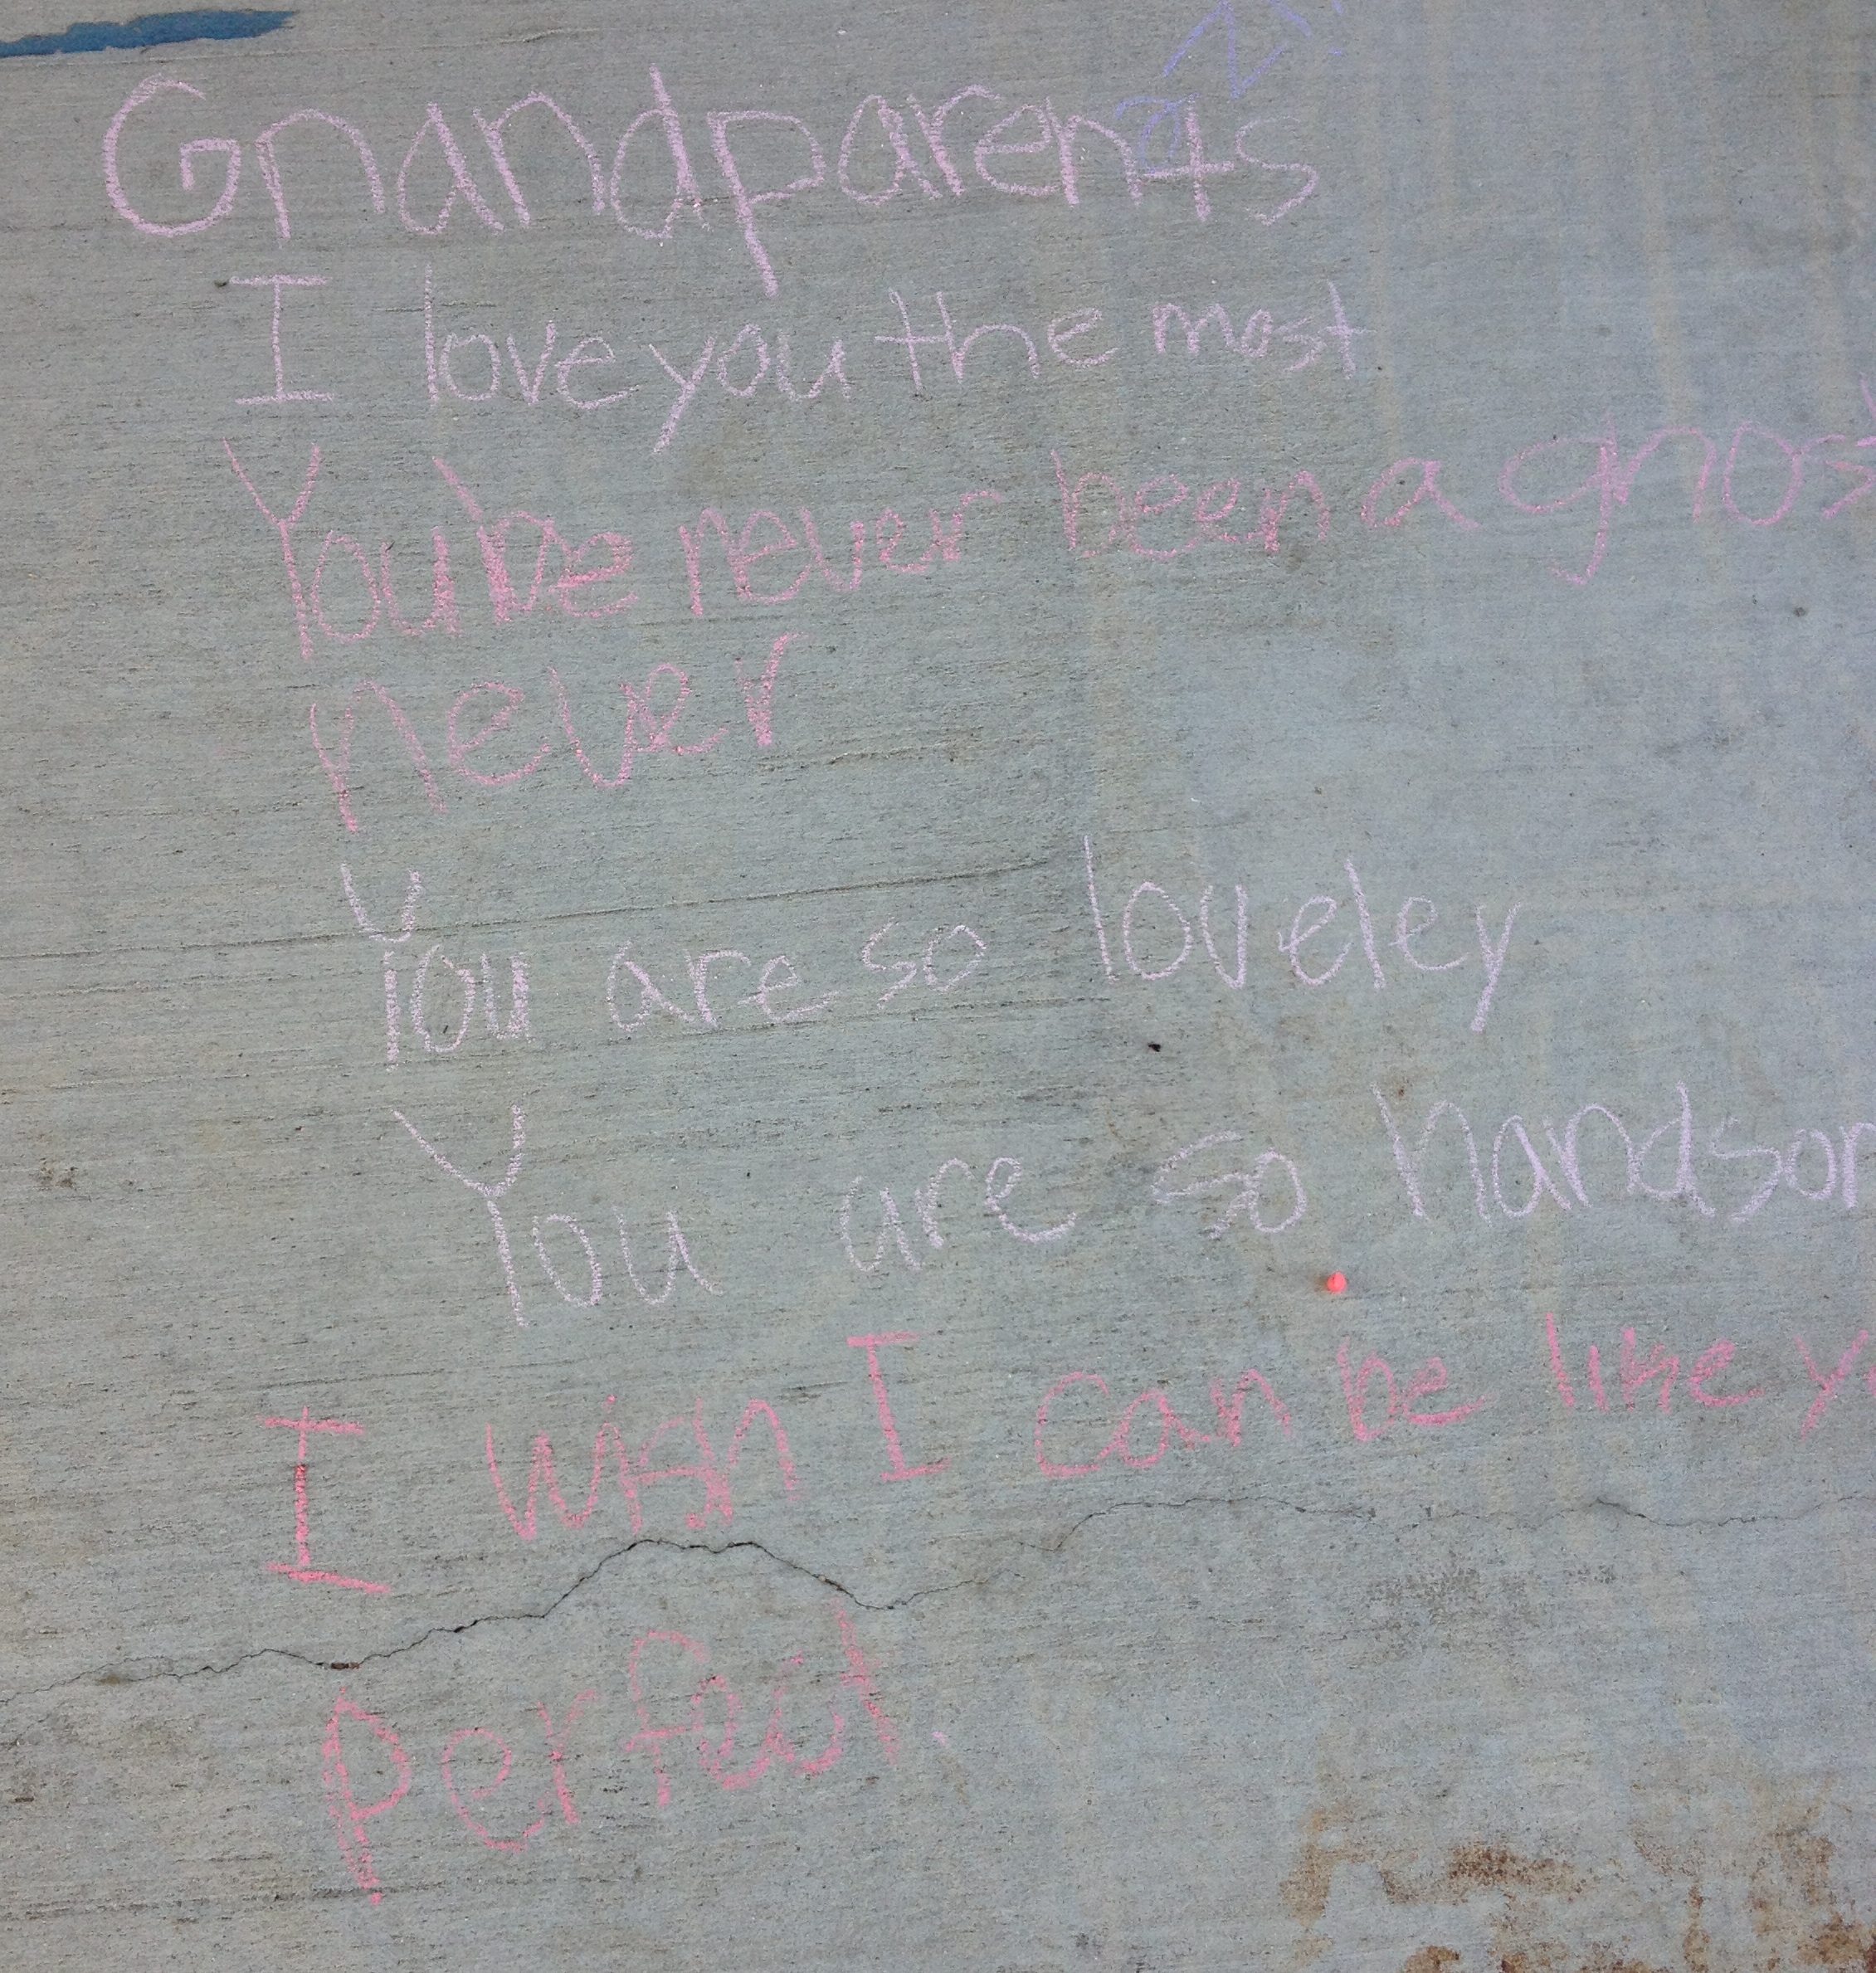 Gnandparents
I love you the most
Youbve never been a ghost
never
You are so loveley
You are so handsom
I wish I can be like yo
perfect.